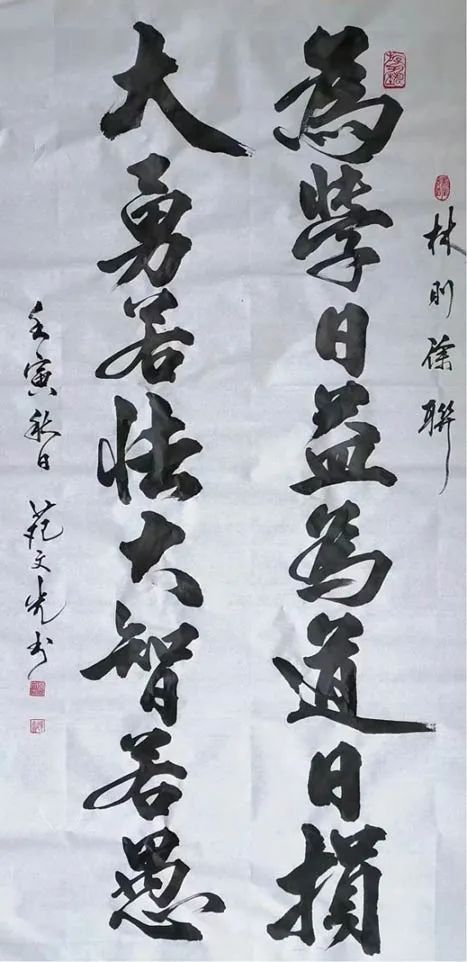 林则徐聯
為學日益為道日損
大勇若怯大智若愚
壬寅秋日 范文光书